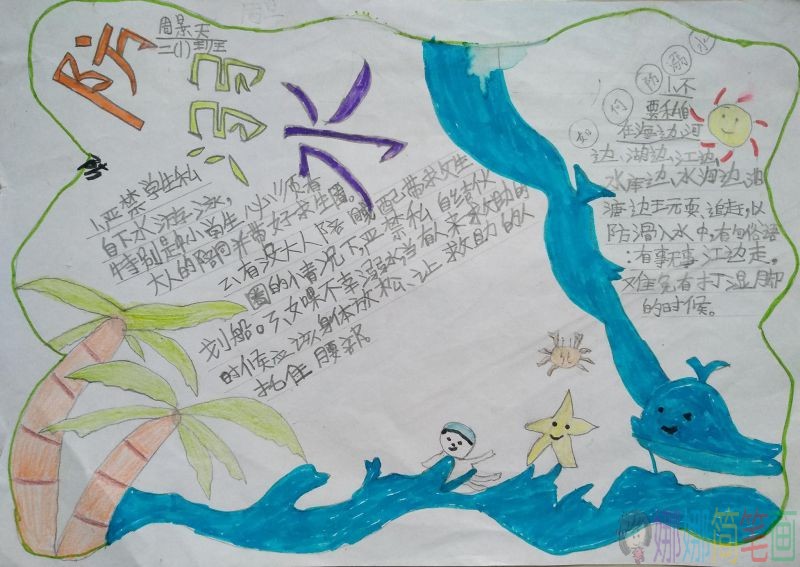 防溺水
周景天
二(1)班
1.严禁学生私
自下水游泳,
特别是中小学生必须有
大人的陪同并带好求生圈。
2.有没大人陪
圈的情况下,严禁私自结伙
划船。3.如果不幸溺水当有人来救助的
时候应该身体放松、让救助的人
托住腰部
如何防溺水
1.不
要私自
在海边、河
边、湖边、江边、
水库边、水沟边、池
塘边玩、追赶,以
防滑入水中,有句俗语
:有事无事江边走,
难免有打湿脚
的时候。
娜娜简笔画